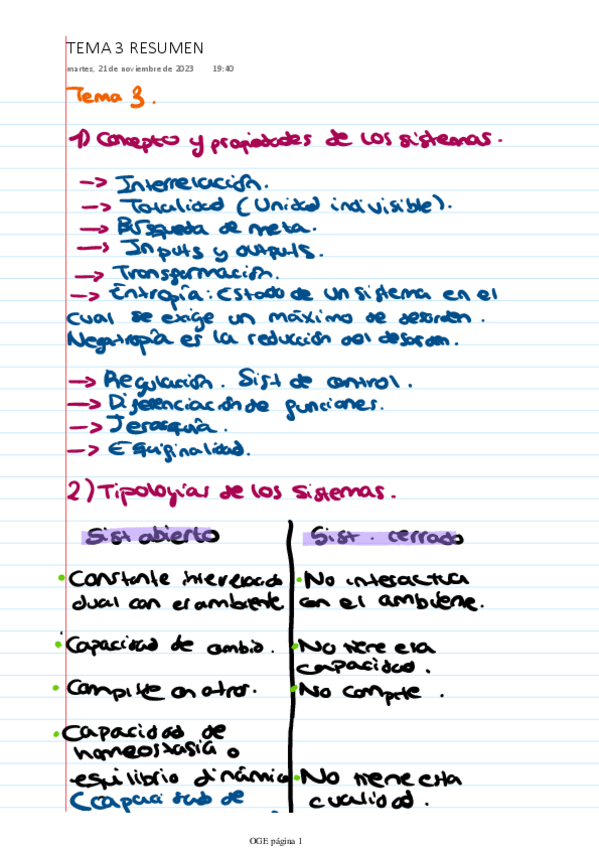 TEMA 3 RESUMEN
martes, 21 de noviembre de 2023 19:40
Tema 3.
1) Concepto y propiedades de los sistemas.
→ Interrelación.
→ Totalidad (Unidad indivisible).
→ Búsqueda de meta.
→ Inputs y outputs.
→ Transformación.
→ Entropía: Estado de un sistema en el
cual se exige un máximo de desorden.
Negatropía es la reducción del desorden.
→ Regulación. Sist de control.
→ Diferenciación de funciones.
→ Jerarquía.
→ Equifinalidad.
2) Tipologías de los sistemas.
Sist abierto
Sist. cerrado
• Constante
dual con el ambiente
• No interactua
con el ambiente.
• Capacidad de cambio.
• No tiene esa
capacidad.
• Compite con otros.
• No compite.
• Capacidad de
homeostasia o
equilibrio dinámico
(capacidad de
• No tiene esta
cualidad.
OGE página 1